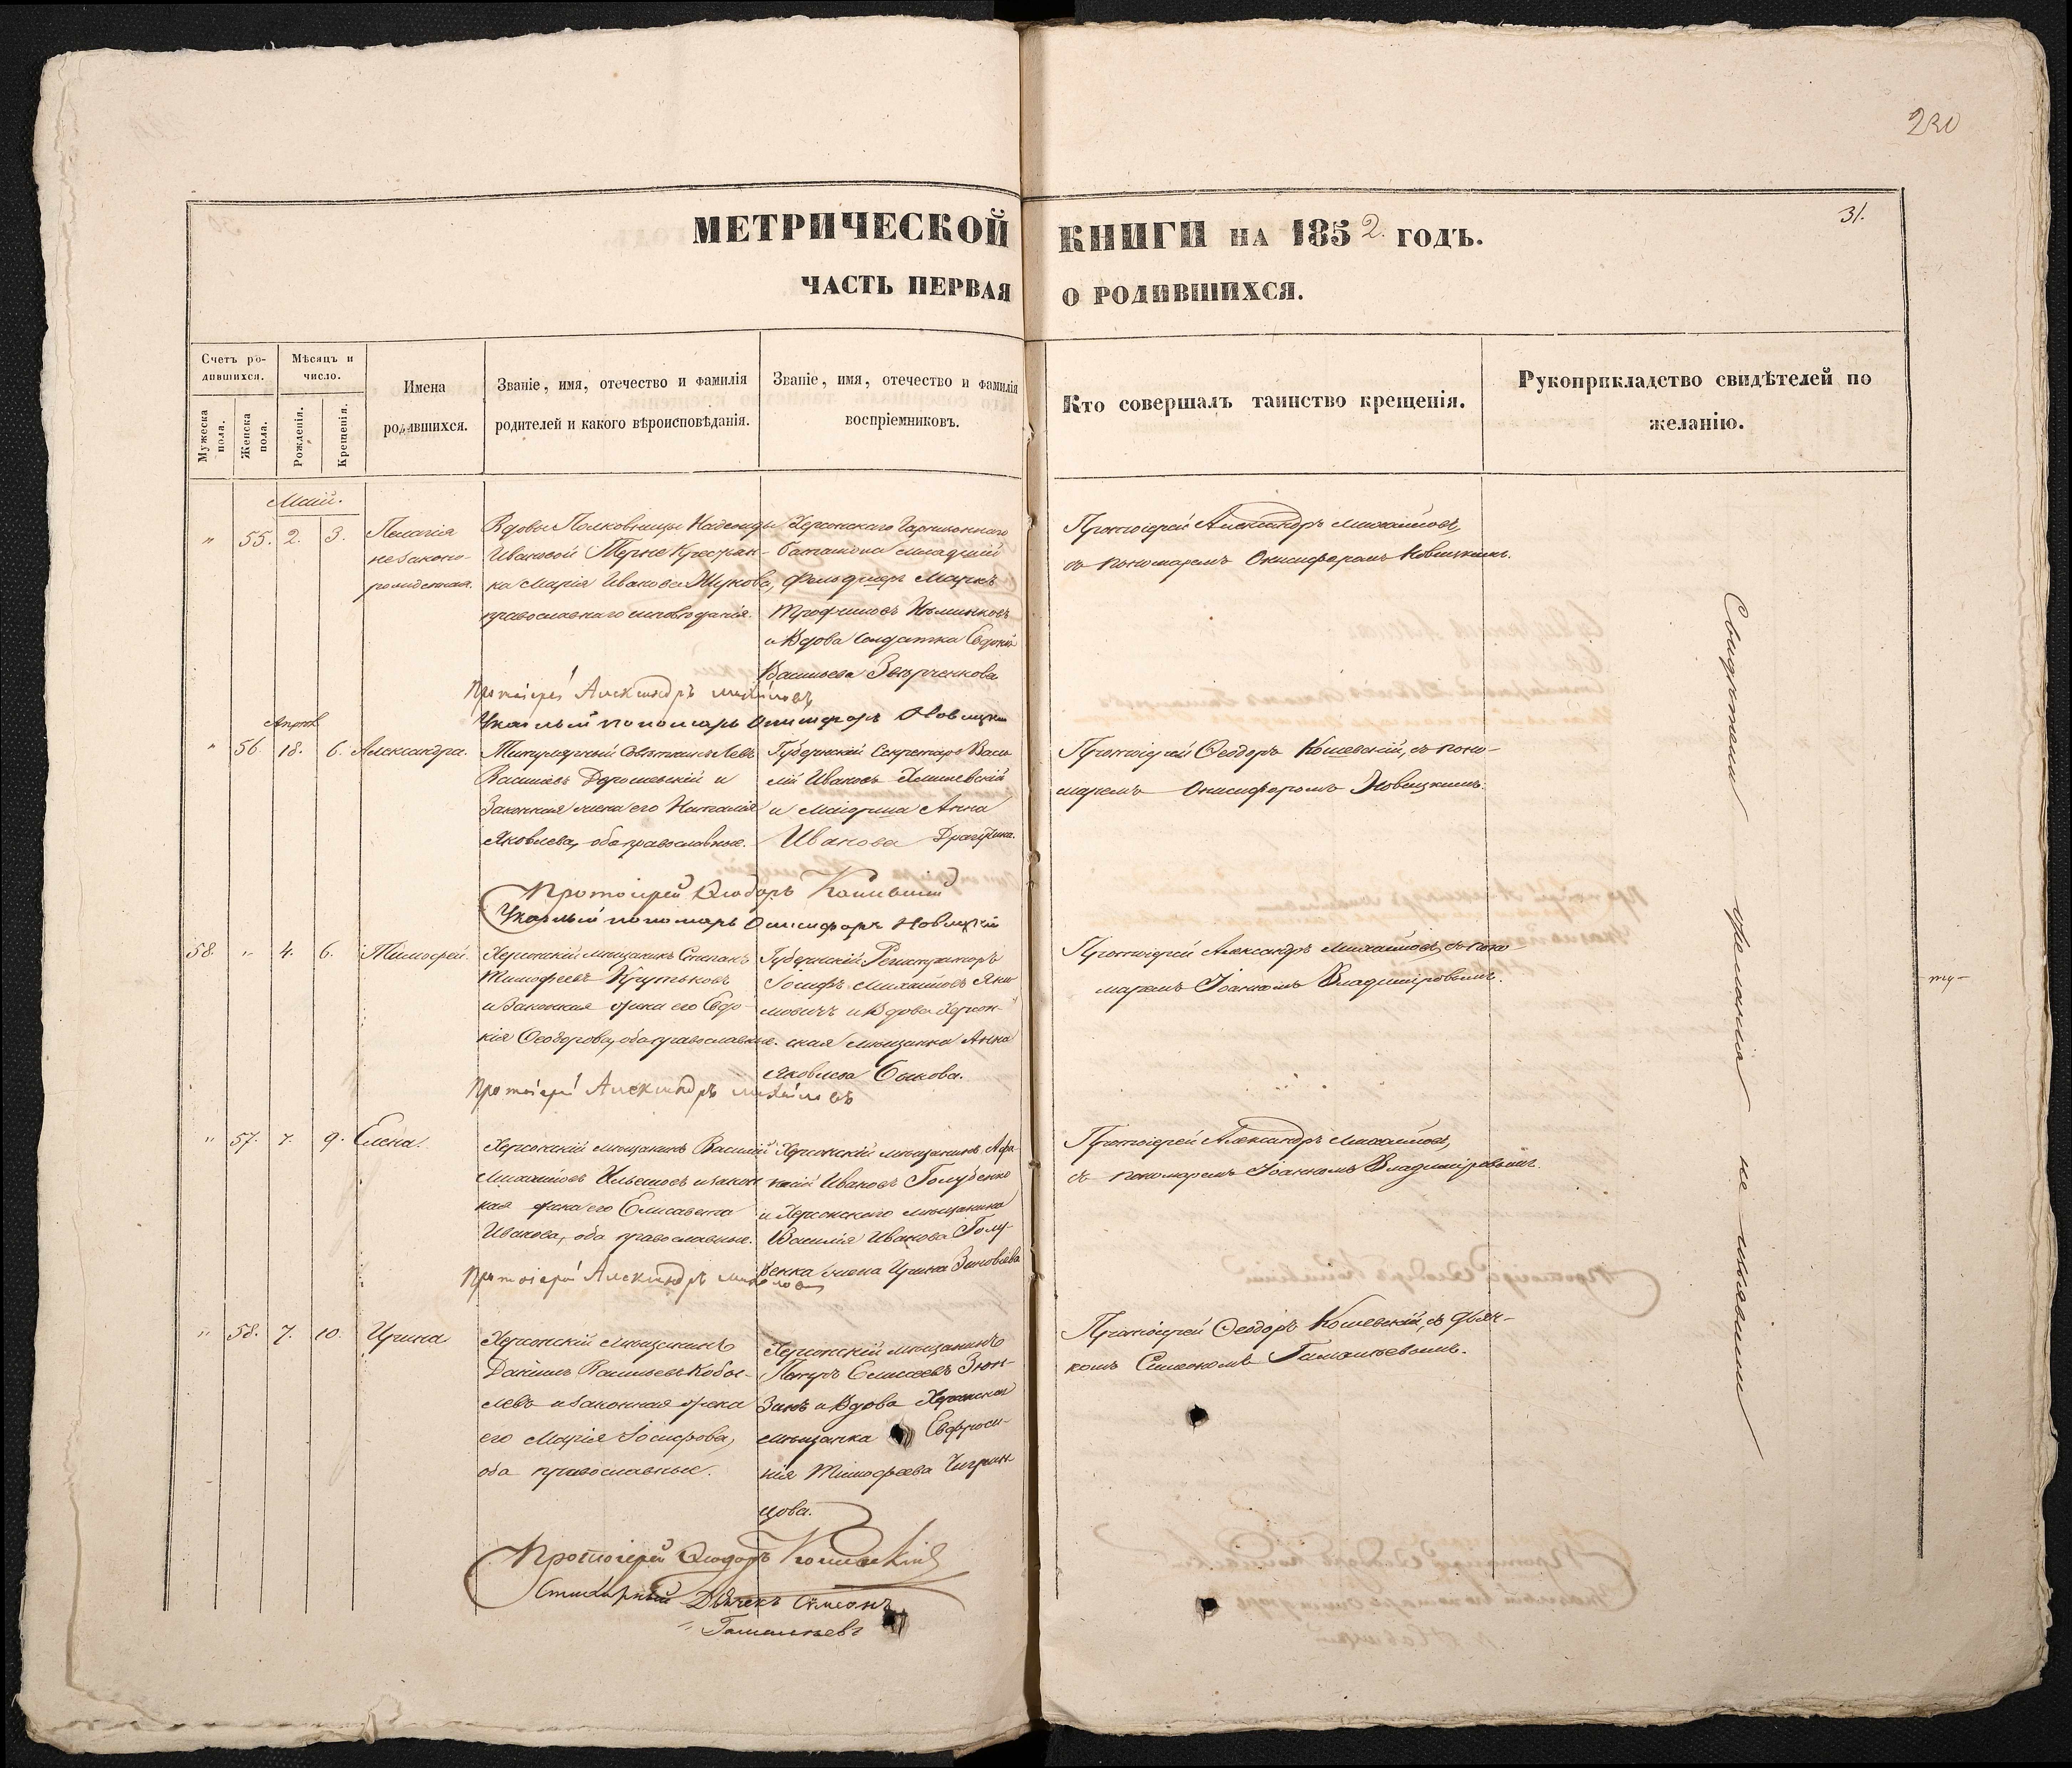 230
31.
МЕТРИЧЕСКОЙ КНИГИ НА 1852. ГОДЪ.
ЧАСТЬ ПЕРВАЯ О РОДИВШИХСЯ.
Счетъ ро-
дившихся.
Мужеска пола.
Женска пола.
Мѣсяцъ и
число.
Рожденія.
Крещенія.
Имена
родившихся.
Званіе, имя, отечество и фамилія
родителей и какого вѣроисповѣданія.
Званіе, имя, отечество и фамилія
воспріемниковъ.
Кто совершалъ таинство крещенія.
Рукоприкладство свидѣтелей по
желанію.
Маій.
" 55. 2. 3.
Пелагія
незаконо-
рожденная.
Вдовы Полковницы Надежды
Ивановой Терне Крестьян-
ка Марія Иванова Жукова,
православнаго исповѣданія.
Херсонскаго Гарнизоннаго
баталіона младшій
фельдшеръ Марко
Трофимовъ
и Вдова Солдатка Евдокія
Васильева
Протоіерей Александръ Михайловъ,
съ пономаремъ Онисифоромъ Новицкимъ.
Протоіерей Александръ Михайловъ
Указный пономарь Онисифоръ Новицкій
Апрѣль
" 56 18. 6. Александра.
Титулярный Совѣтникъ Левъ
Васильевъ Дорошевскій и
Законная жена его Наталія
Яковлева, оба православные.
Губернскій Секретарь Васи-
лій Ивановъ
и Маіорша Анна
Иванова
Протоіерей Ѳеодоръ Кошевскій, съ поно-
маремъ Онисифоромъ Новицкимъ.
Протоіерей Ѳеодоръ Кошевскій
Указный пономарь Онисифоръ Новицкій
58. " 4. 6. Тимофей.
Херсонскій мѣщанинъ Степанъ
Тимофеевъ Крутьковъ
и законная жена его Евдо-
кія Ѳеодорова, оба православные.
Губернскій Регистраторъ
Іосифъ Михайловъ Яки-
мовичъ и Вдова Херсон-
ская мѣщанка Анна
Яковлева Быкова.
Протоіерей Александръ Михайловъ, съ поно-
маремъ Іоанномъ Владиміровымъ.
Протоіерей Александръ Михайловъ
" 57. 7. 9. Елена.
Херсонскій мѣщанинъ Василій
Михайловъ Ильешовъ и закон-
ная жена его Елисавета
Иванова, оба православные.
Херсонскій мѣщанинъ Афа-
насій Ивановъ Голубенко
и Херсонскаго мѣщанина
Василія Иванова Голу-
бенка жена Ирина Зиновьева
Протоіерей Александръ Михайловъ,
съ пономаремъ Іоанномъ Владиміровымъ.
Протоіерей Александръ Михайловъ
" 58. 7. 10. Ирина
Херсонскій мѣщанинъ
Даніилъ Васильевъ Кобы-
левъ и законная жена
его Марія Іосифова,
оба православные.
Херсонскій мѣщанинъ
Петръ Елисеевъ Зюн-
зинъ и Вдова Херсонская
мѣщанка Евфроси-
нія Тимофеева Чигрин-
цова.
Протоіерей Ѳеодоръ Кошевскій, съ дьяч-
комъ Симеономъ
Протоіерей Ѳеодоръ Кошевскій
Стихарный Дьячекъ Сѵмеонъ
Свидѣтели желанія не имѣли